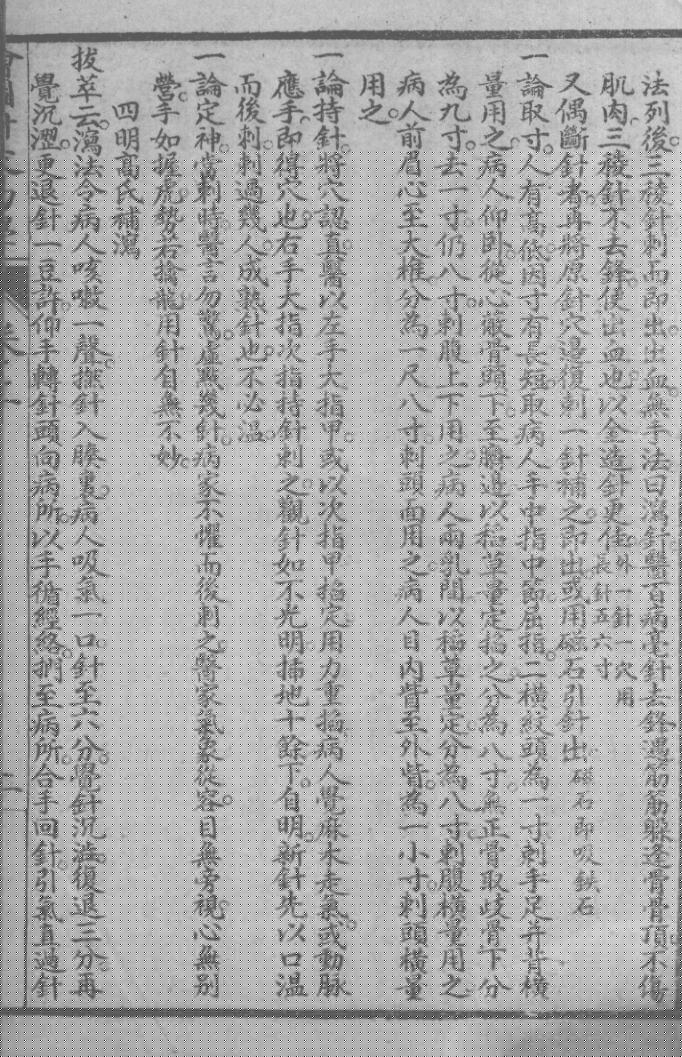 法列後三稜針刺而即出出血無手法曰瀉針醫百病毫針去鋒遇筋筋躲逢骨骨頂不傷
肌肉三稜針不去鋒使出血也以金造針更佳外一針一穴用長針五六寸
又偶斷針者再將原針穴邊復刺一針補之即出或用磁石引針出磁石即吸鉄石
一論取寸人有高低因寸有長短取病人年中指中節屈指二橫紋頭為一寸刺手足并背橫
量用之病人仰臥從心蔽骨頭下至臍邊以稻草量定掐之分為八寸無正骨取歧骨下分
為九寸去一寸仍八寸刺腹上下用之病人兩乳間以稻草量定分為八寸刺腹橫量用之
病人前眉心至大椎分為一尺八寸刺頭面用之病人目內眥至外眥為一小寸刺頭橫量
用之
一論持針將穴認真醫以左手大指甲或以次指甲掐定用力重掐病人覺麻木走氣或動脉
應手即得穴也右手大指次指持針刺之觀針如不光明插地十餘下自明新針先以口溫
而後刺刺過幾人成熟針也不必溫
一論定神當刺時醫言勿驚虛點幾針病家不懼而後刺之醫家氣象從容目無旁視心無别
營手如握虎勢若擒龍用針自無不妙
四明高氏補瀉
拔萃云瀉法令病人咳嗽一聲撚針入腠裏病人吸氣一口針至六分覺針沉澁復退三分再
覺沉澀更退針一豆許仰手轉針頭向病所以手循經絡捫至病所合手回針引氣直過針